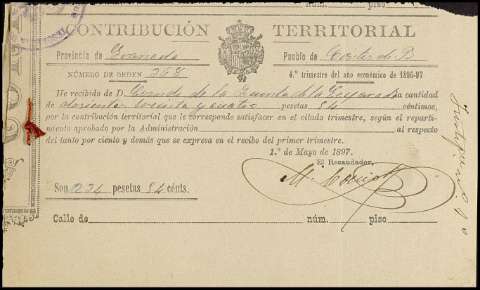 núm. piso
CONTRIBUCIÓN TERRITORIAL
Provincia de Granada Pueblo de
NÚMERO DE ORDEN 368 4.º trimestre del año económico de 1896-97
He recibido de D. Conde de la Quinta de la la cantidad
de pesetas 84 céntimos,
por la contribución territorial que le corresponde satisfacer en el citado trimestre, según el reparti-
miento aprobado por la Administración al respecto
del tanto por ciento y demás que se expresa en el recibo del primer trimestre.
1.º de Mayo de 1897.
El Recaudador,
Son 234 pesetas 84 cénts.
Calle de núm. piso